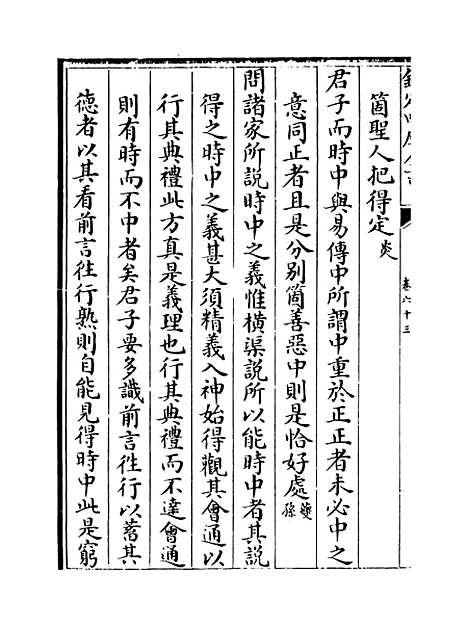 欽定四庫全書
卷六十三
箇聖人把得定炎
君子而時中與易傳中所謂中重於正正者未必中之
意同正者且是分别箇善惡中則是恰好處夔孫
問諸家所説時中之義惟横渠説所以能時中者其説
得之時中之義甚大須精義入神始得觀其會通以
行其典禮此方真是義理也行其典禮而不達會通
則有時而不中者矣君子要多識前言往行以蓄其
德者以其看前言往行熟則自能見得時中此是窮